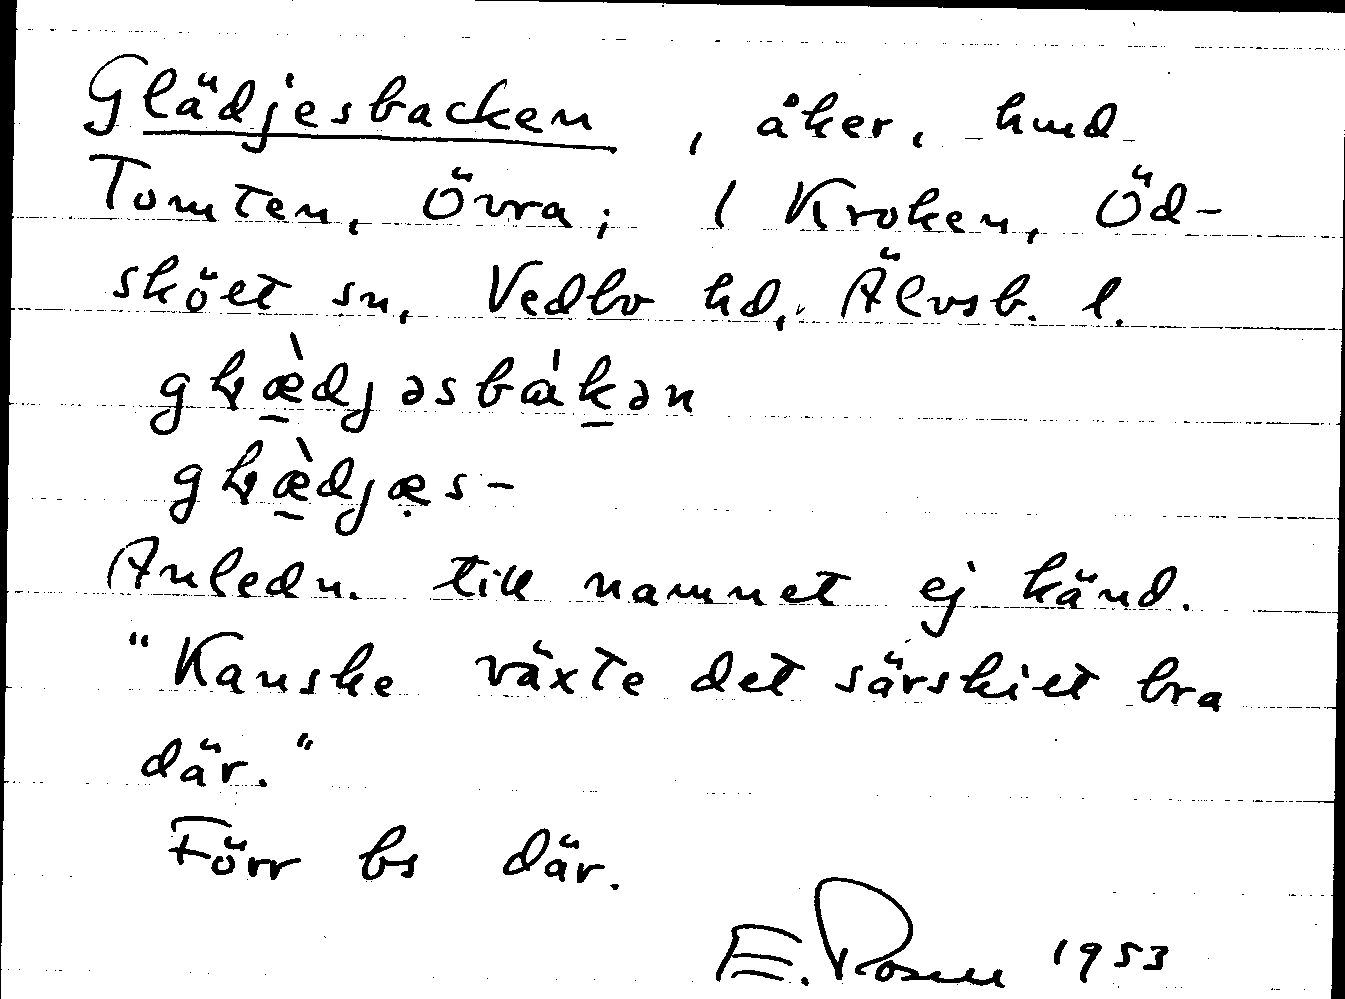 Glädjesbacken, åker, hmd
Tomten, Övra; 1 Kroken, Öd-
sköet sn, Vedbo hd, Älvsb. l.
gƚæ̠̀djəsbákən
gƚæ̠̀djæs-
Anledn. till namnet ej känd.
"Kanske växte det särskilt bra
där."
Förr bs där.
E. Rosell 1953